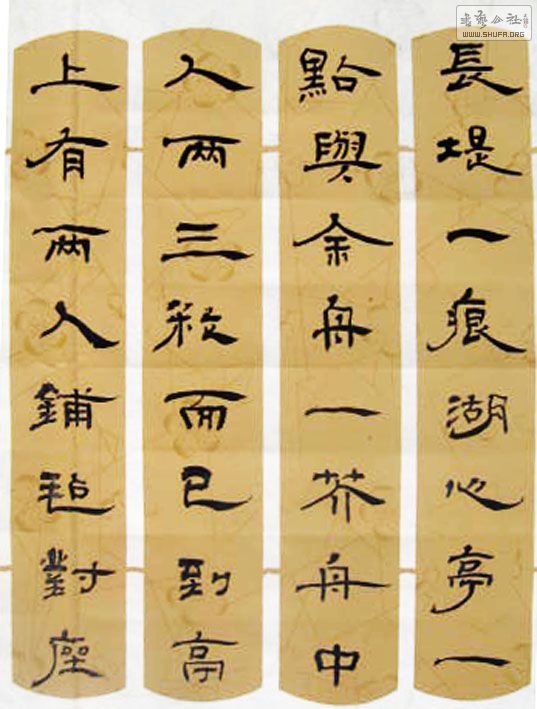 長堤一痕湖心亭一
點與余舟一芥舟中
人两三粒而已到亭
上有两人鋪毡對座
書藝公社
WWW.SHUFA.ORG